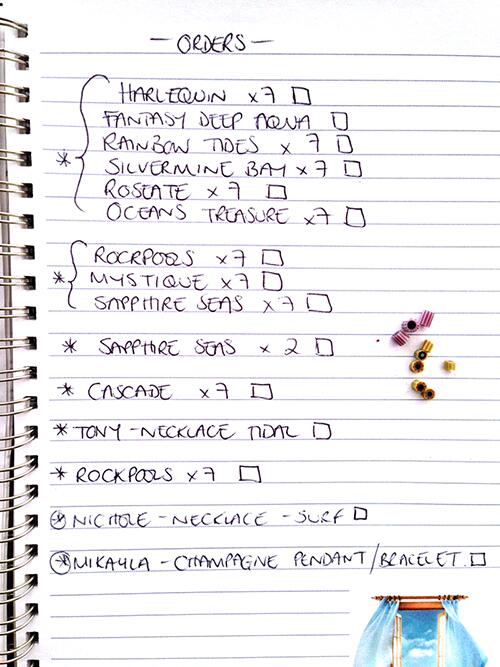 - ORDERS -
HARLEQUIN x7 □
FANTASY DEEP AQUA □
RAINBOW TIDES x 7 □
* SILVERMINE BAY x7 □
ROSEATE x 7 □
OCEANS TREASURE x7 □
ROCKPOOLS x7 □
* MYSTIQUE x7 □
SAPPHIRE SEAS x7 □
* SAPPHIRE SEAS x 2 □
* CASCADE x7 □
* TONY - NECKLACE TIDAL □
* ROCKPOOLS x7 □
* NICHOLE - NECKLACE - SURF □
* MIKAYLA - CHAMPAGNE PENDANT/BRACELET. □